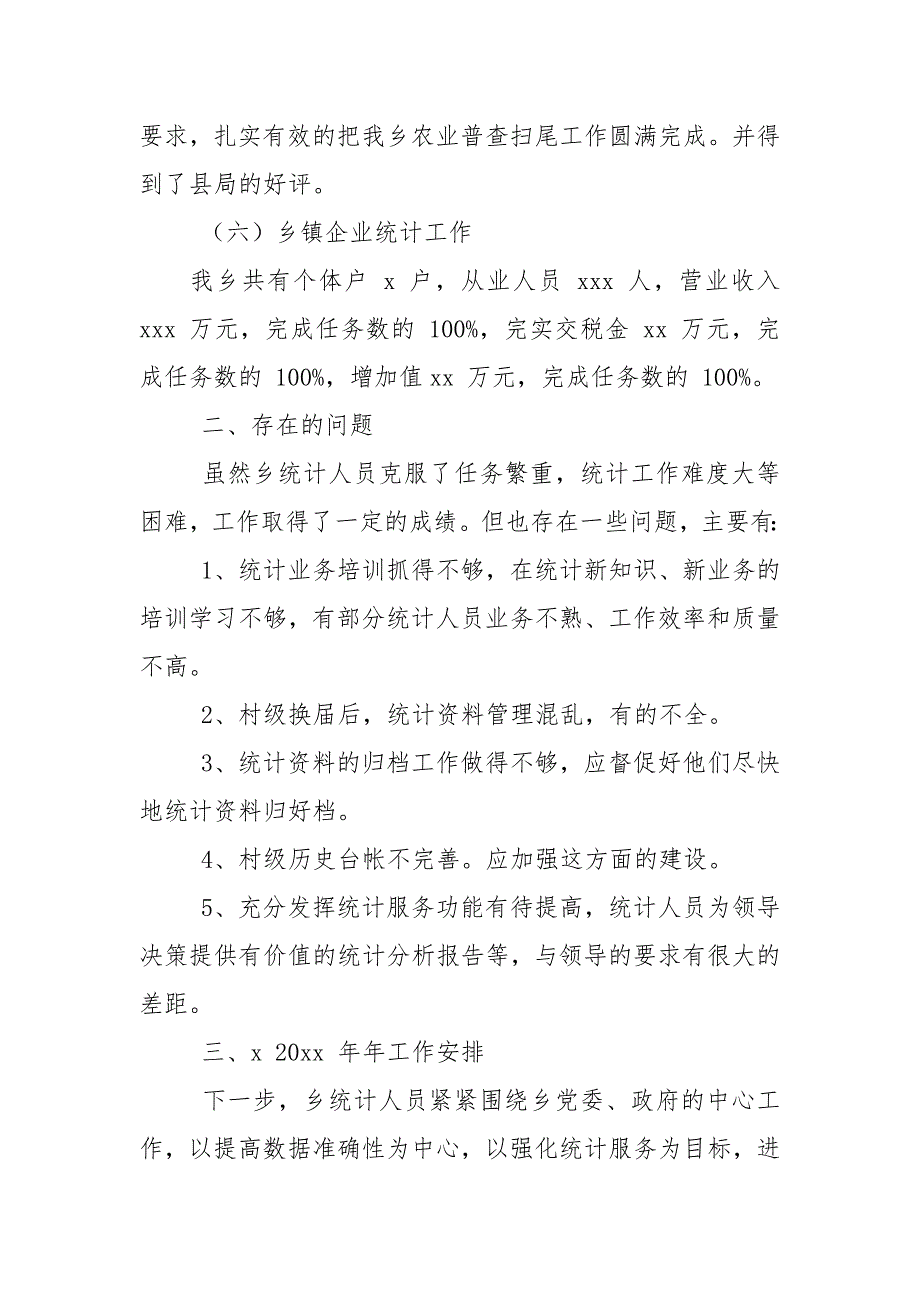 要求，扎实有效的把我乡农业普查扫尾工作圆满完成。并得
到了县局的好评。
（六）乡镇企业统计工作
我乡共有个体户 x 户，从业人员 xxx 人，营业收入
xxx 万元，完成任务数的 100%，完实交税金 xx 万元，完
成任务数的 100%，增加值xx 万元，完成任务数的 100%。
二、存在的问题
虽然乡统计人员克服了任务繁重，统计工作难度大等
困难，工作取得了一定的成绩。但也存在一些问题，主要有：
1、统计业务培训抓得不够，在统计新知识、新业务的
培训学习不够，有部分统计人员业务不熟、工作效率和质量
不高。
2、村级换届后，统计资料管理混乱，有的不全。
3、统计资料的归档工作做得不够，应督促好他们尽快
地统计资料归好档。
4、村级历史台帐不完善。应加强这方面的建设。
5、充分发挥统计服务功能有待提高，统计人员为领导
决策提供有价值的统计分析报告等，与领导的要求有很大的
差距。
三、x 20xx 年年工作安排
下一步，乡统计人员紧紧围绕乡党委、政府的中心工
作，以提高数据准确性为中心，以强化统计服务为目标，进